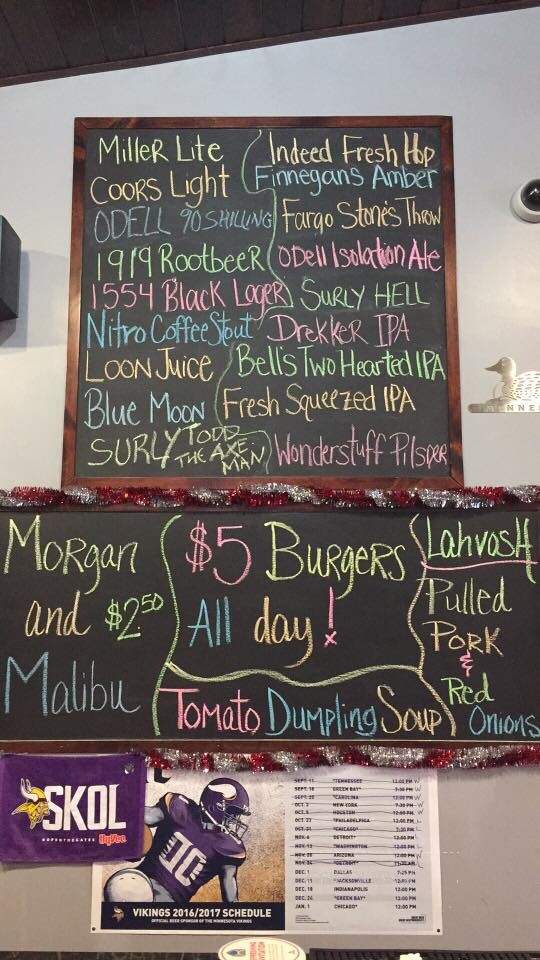 Miller Lite
Coors Light
ODELL 90 SHILLING
1919 Rootbeer
1554 Black Lager
Nitro Coffee Stout
Loon Juice
Blue Moon
SURLY TODD THE AXE MAN
Indeed Fresh Hop
Finnegans Amber
Fargo Stone's Throw
Odell Isolation Ale
SURLY HELL
Drekker IPA
Bell's Two Hearted IPA
Fresh Squeezed IPA
Wonderstuff Pilsner
Morgan
and $2.50
Malibu
$5 Burgers
All day!
Tomato Dumpling Soup
Lahvosh
Pulled
Pork
&
Red
Onions
SKOL
HyVee
VIKINGS 2016/2017 SCHEDULE
OFFICIAL BEER SPONSOR OF THE MINNESOTA VIKINGS
SEPT. 11 *TENNESSEE 12:00 PM W
SEPT. 18 GREEN BAY* 7:30 PM W
SEPT. 25 *CAROLINA 12:00 PM W
OCT. 3 NEW YORK 7:30 PM W
OCT. 9 HOUSTON 12:00 PM W
OCT. 23 *PHILADELPHIA 12:00 PM
OCT. 31 *CHICAGO* 7:30 PM
NOV. 6 DETROIT* 12:00 PM
NOV. 13 *WASHINGTON 12:00 PM
NOV. 20 ARIZONA 12:00 PM W
NOV. 24 *DETROIT* 11:30 AM
DEC. 1 DALLAS 7:25 PM
DEC. 11 *JACKSONVILLE 12:00 PM
DEC. 18 INDIANAPOLIS 12:00 PM
DEC. 24 *GREEN BAY* 12:00 PM
JAN. 1 CHICAGO* 12:00 PM